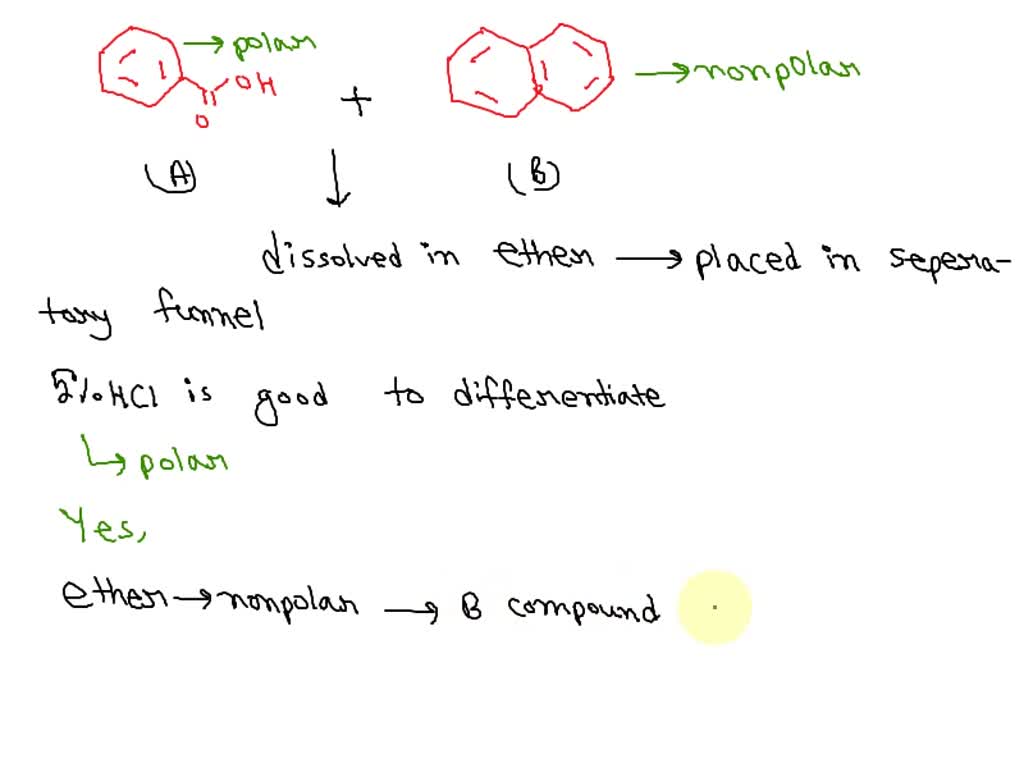 → polar
OH
O
+
→ nonpolar
(A)
(B)
↓
dissolved in ether → placed in sepera-
tory funnel
5% HCl is good to differentiate
↳ polar
Yes,
ether → nonpolar → B compound